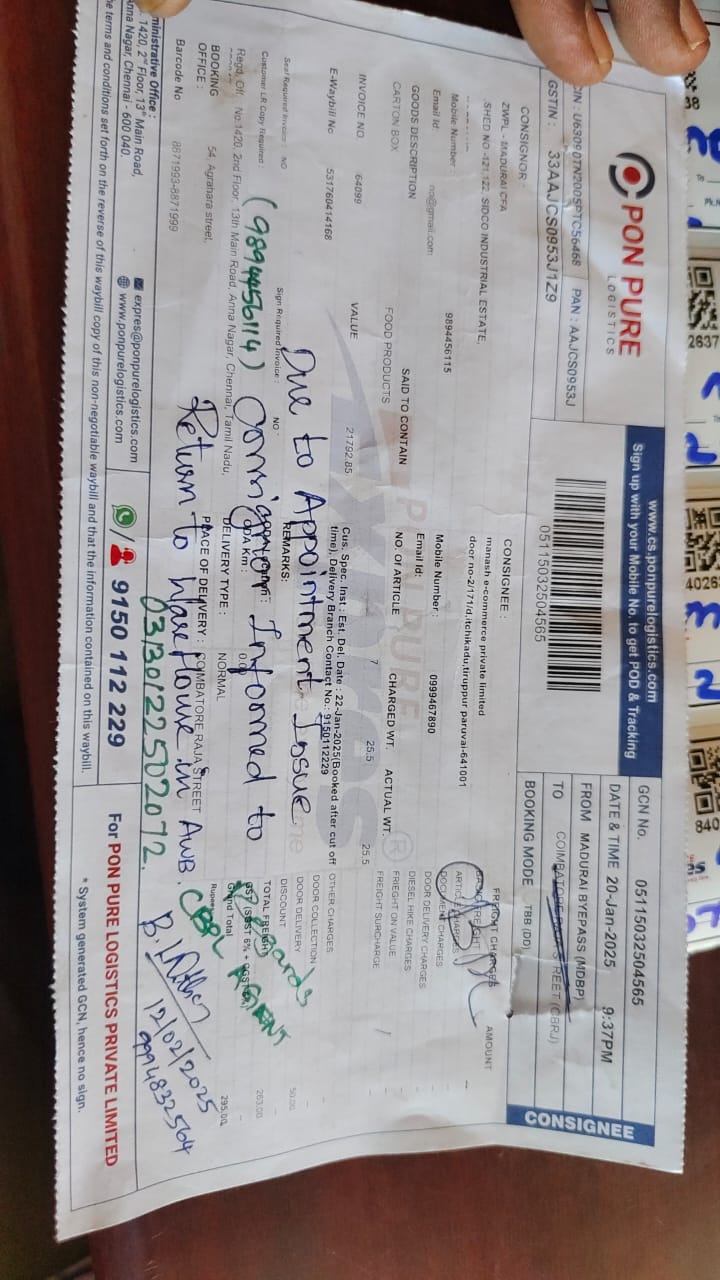 PON PURE
LOGISTICS
www.cs.ponpurelogistics.com
Sign up with your Mobile No. to get POD & Tracking
CIN : U63090TN2005PTC56468 PAN : AAJCS0953J
GSTIN : 33AAJCS0953J1Z9
05115032504565
GCN No. 05115032504565
DATE & TIME 20-Jan-2025 9:37PM
FROM MADURAI BYEPASS (MDBP)
TO COIMBATORE REET (CBRJ)
BOOKING MODE TBB (DD)
CONSIGNEE
CONSIGNOR :
ZWPL - MADURAI CFA
SHED NO -121,122, SIDCO INDUSTRIAL ESTATE,
Mobile Number : 9894456115
Email Id no@gmail.com
CONSIGNEE :
manash e-commerce private limited
door no-2/171/d,itchikadu,tiruppur paruvai-641001
Mobile Number : 0999467890
Email Id:
GOODS DESCRIPTION SAID TO CONTAIN NO. OF ARTICLE CHARGED WT. ACTUAL WT.
CARTON BOX FOOD PRODUCTS 7 25.5 25.5
INVOICE NO. 64099 VALUE 21792.85
E-Waybill No 531760414168
Cus. Spec. Inst : Est. Del. Date : 22-Jan-2025(Booked after cut off
time), Delivery Branch Contact No.: 9150112229
FREIGHT CHARGES AMOUNT
DOCUMENT CHARGES
DOOR DELIVERY CHARGES
DIESEL HIKE CHARGES
FRIEGHT ON VALUE
FREIGHT SURCHARGE
OTHER CHARGES
DOOR COLLECTION
DOOR DELIVERY 50.00
DISCOUNT
TOTAL FREIGHT 263.00
Rupees Grand Total 295.00
Sign Required Invoice : NO
REMARKS:
Customer LR Copy Required :
Regd. Off: No:1420, 2nd Floor, 13th Main Road, Anna Nagar, Chennai, Tamil Nadu,
ODA Km : 0.00
DELIVERY TYPE : NORMAL
BOOKING OFFICE : 54, Agrahara street,
PLACE OF DELIVERY : COIMBATORE RAJA STREET
Barcode No 8871993-8871999
Due to Appointment Issue
(9894456114) Informed to
Return to Ware House in AWB.
03130122502072.
12/02/2025
9994832504
ministrative Office :
1420, 2nd Floor, 13th Main Road,
nna Nagar, Chennai - 600 040.
expres@ponpurelogistics.com
www.ponpurelogistics.com
9150 112 229
For PON PURE LOGISTICS PRIVATE LIMITED
he terms and conditions set forth on the reverse of this waybill copy of this non-negotiable waybill and that the information contained on this waybill.
* System generated GCN, hence no sign.